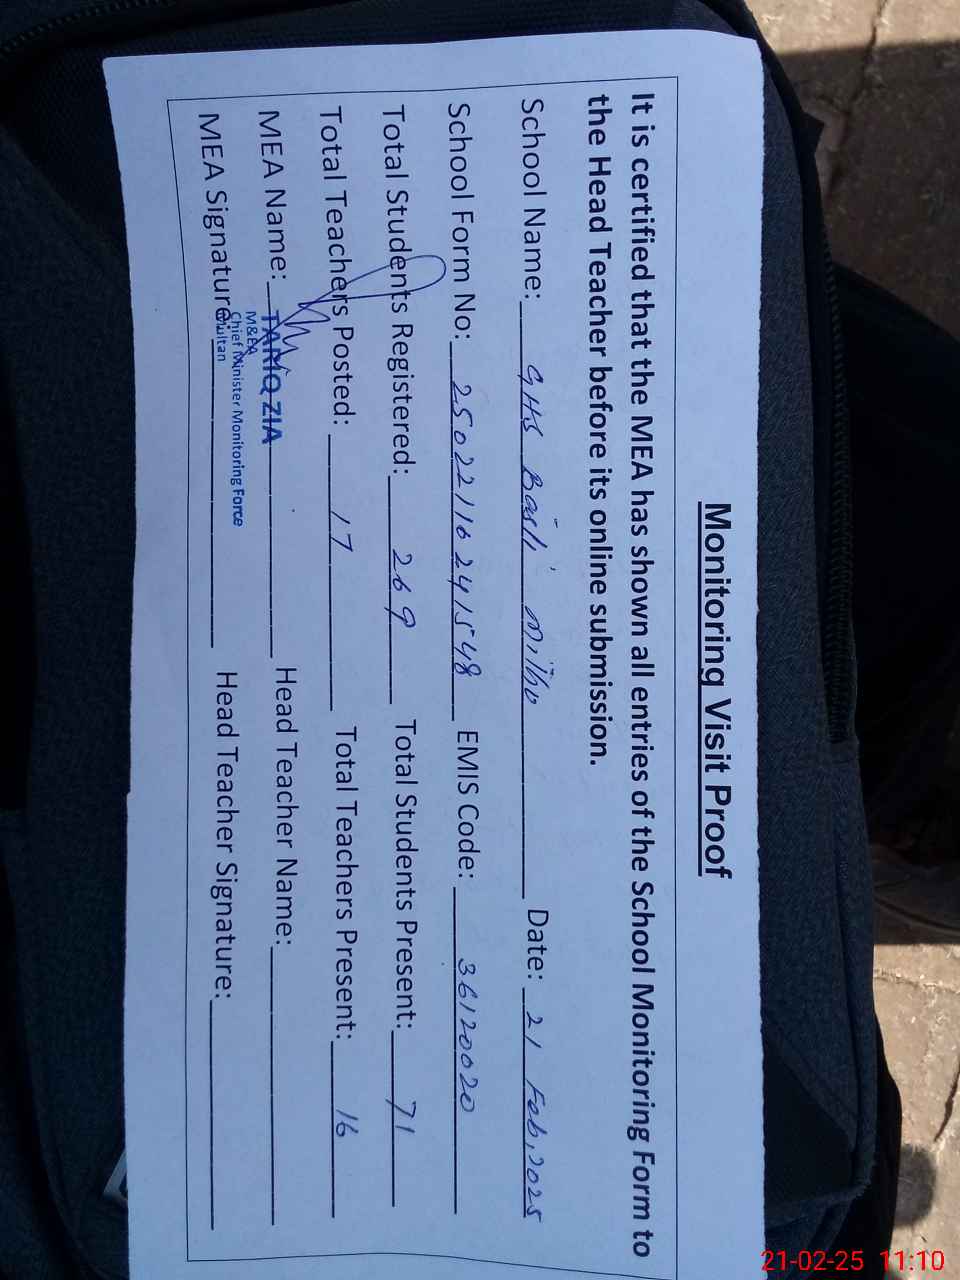 Monitoring Visit Proof
It is certified that the MEA has shown all entries of the School Monitoring Form to
the Head Teacher before its online submission.
School Name: GHS Basti Mithu Date: 21 Feb, 2025
School Form No: 25022116241548 EMIS Code: 36120020
Total Students Registered: 269 Total Students Present: 71
Total Teachers Posted: 17 Total Teachers Present: 16
MEA Name: TARIQ ZIA Head Teacher Name:
M&EA
Chief Minister Monitoring Force
Multan
MEA Signature: Head Teacher Signature:
21-02-25 11:10